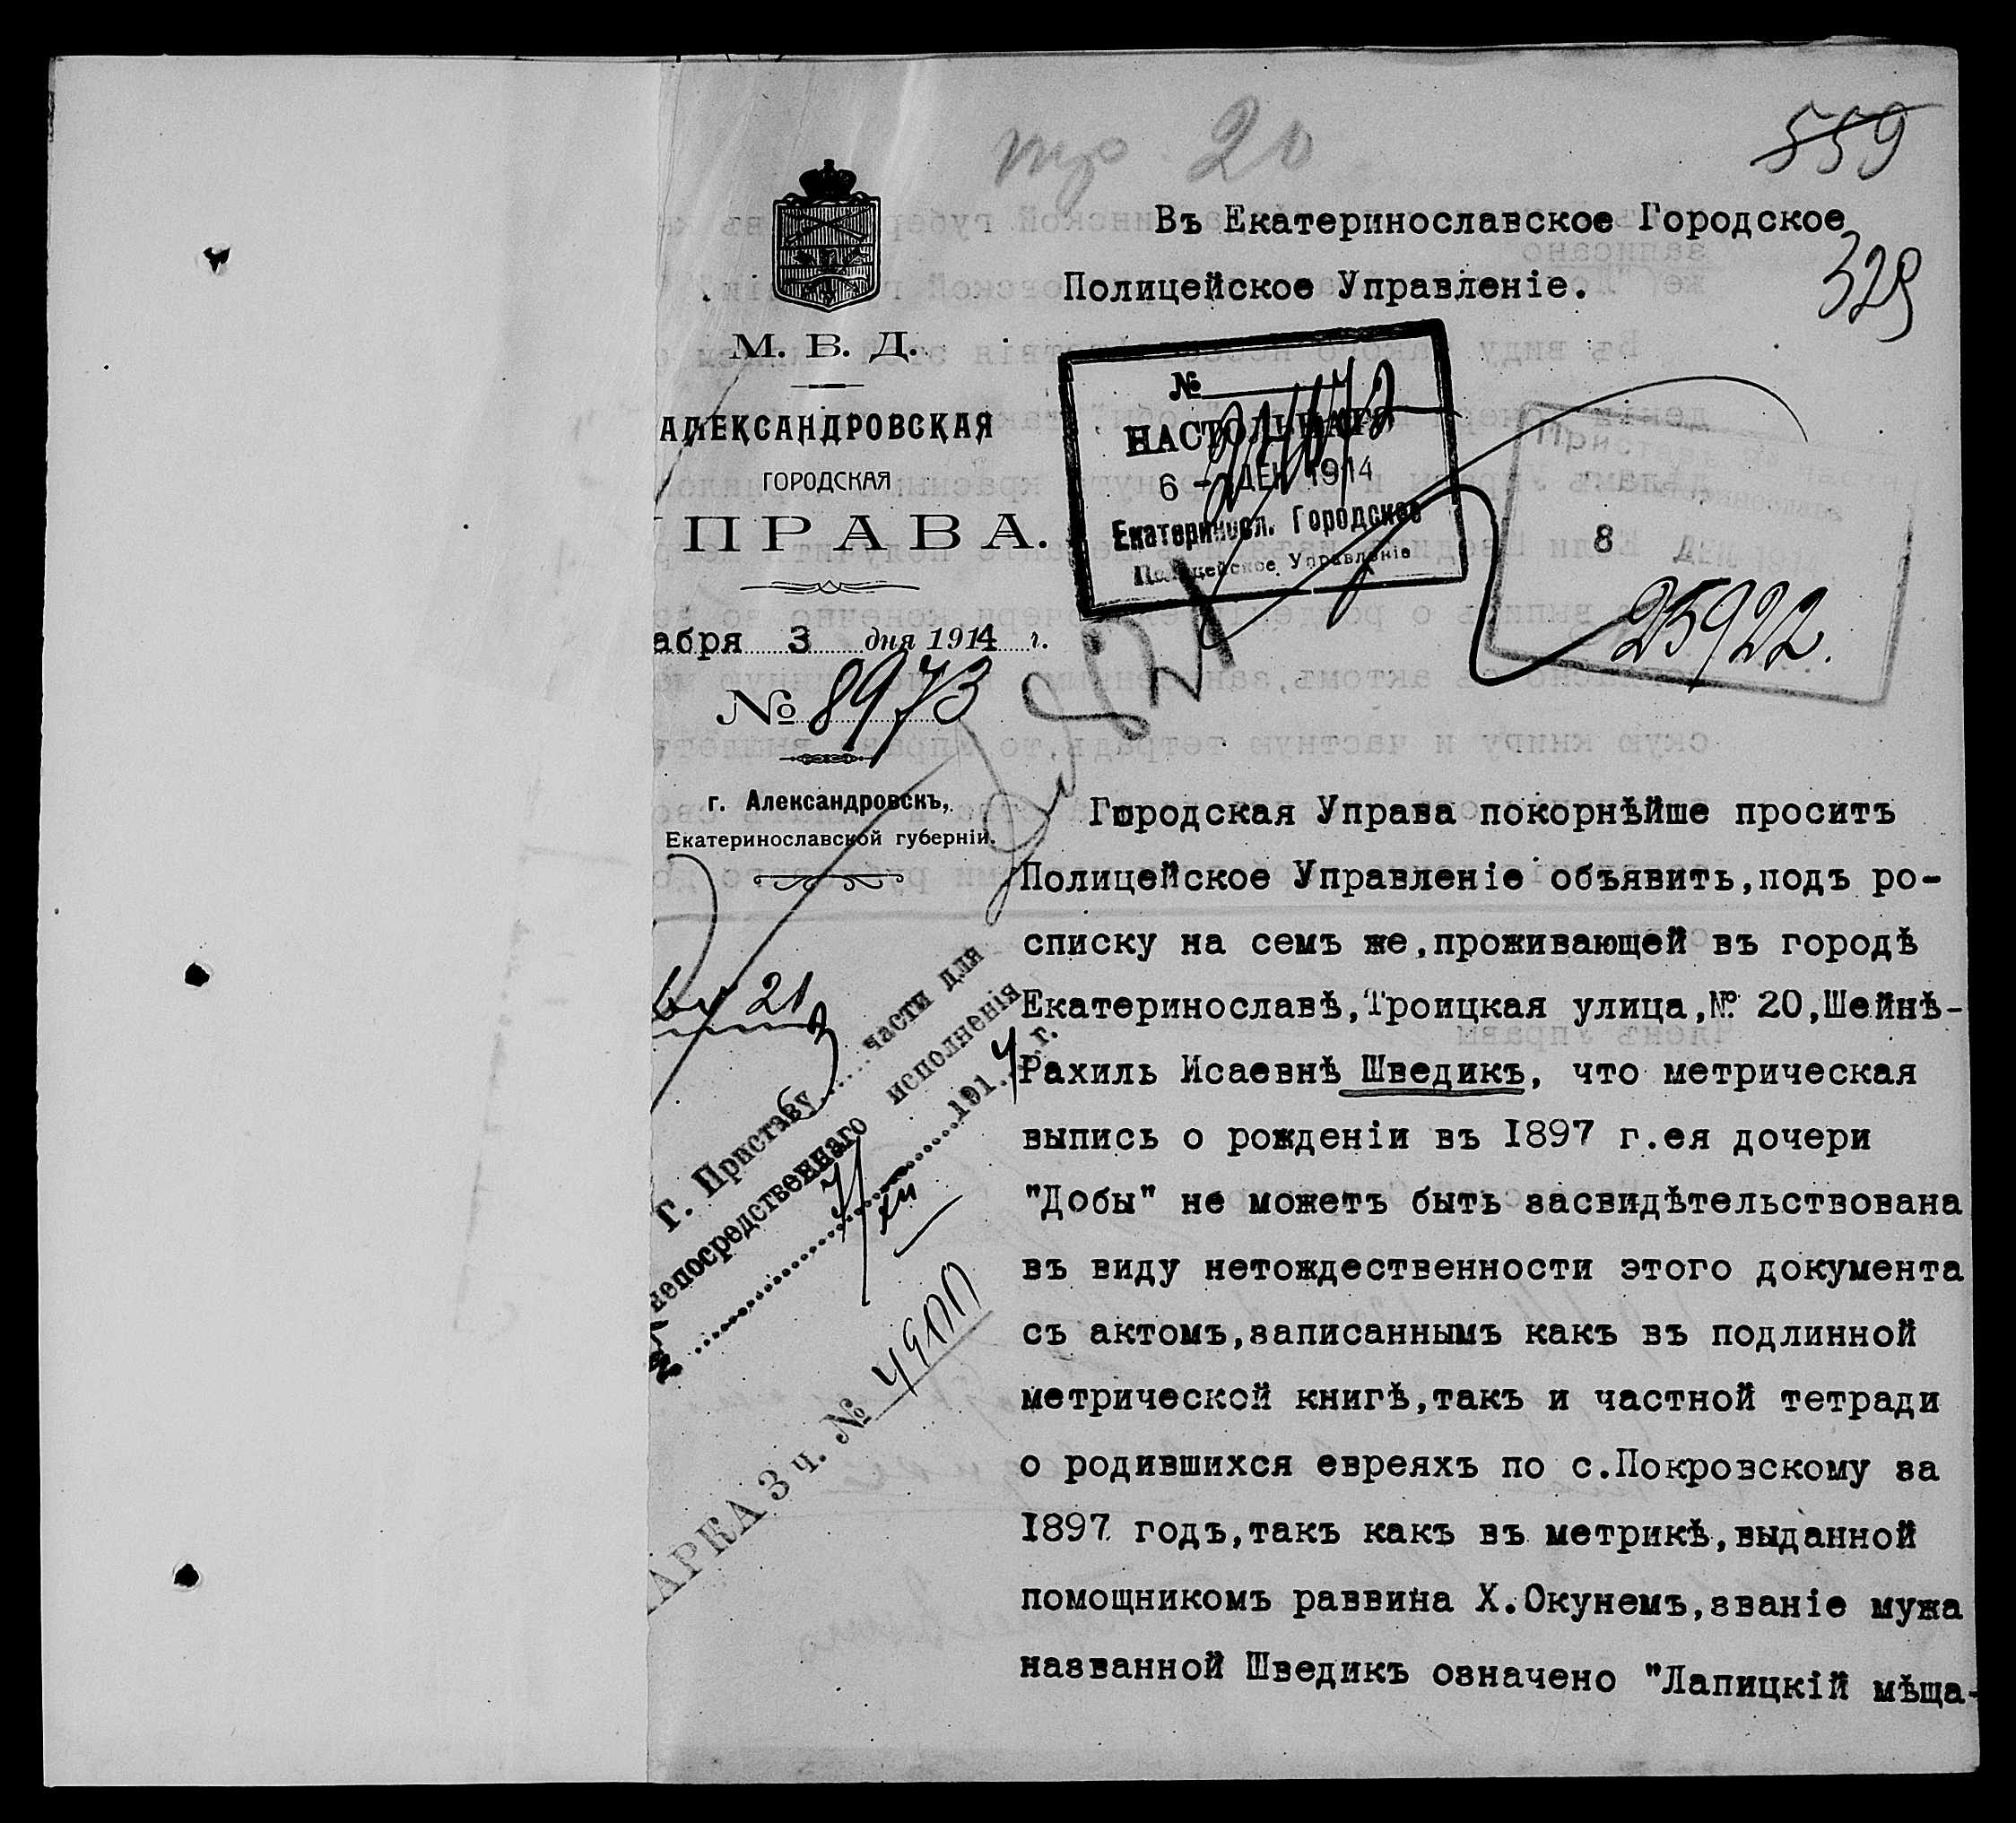 559
Въ Екатеринославское Городское
329
Полицейское Управленіе.
М. В. Д.
АЛЕКСАНДРОВСКАЯ
ГОРОДСКАЯ
ПРАВА.
абря 3 дня 1914 г.
№ 8973
г. Александровскъ,
Екатеринославской губерніи.
№
НАСТОЛЬНАГО
6 - ДЕК 1914
Екатериносл. Городское
Полицейское Управленіе
8 ДЕК
25922.
Городская Управа покорнѣйше проситъ
Полицейское Управленіе объявить,подъ ро-
списку на семъ же,проживающей въ городѣ
Екатеринославѣ,Троицкая улица,№ 20,Шейнѣ-
Рахиль Исаевнѣ Шведикъ, что метрическая
выпись о рожденіи въ I897 г.ея дочери
"Добы" не можетъ быть засвидѣтельствована
въ виду нетождественности этого документа
съ актомъ,записаннымъ какъ въ подлинной
метрической книгѣ,такъ и частной тетради
о родившихся евреяхъ по с.Покровскому за
I897 годъ,такъ какъ въ метрикѣ,выданной
помощникомъ раввина Х.Окунемъ,званіе мужа
названной Шведикъ означено "Лапицкій мѣща-
21
Г. Приставу части для
непосредственнаго исполненія
1914 г.
АРКА 3 ч. №